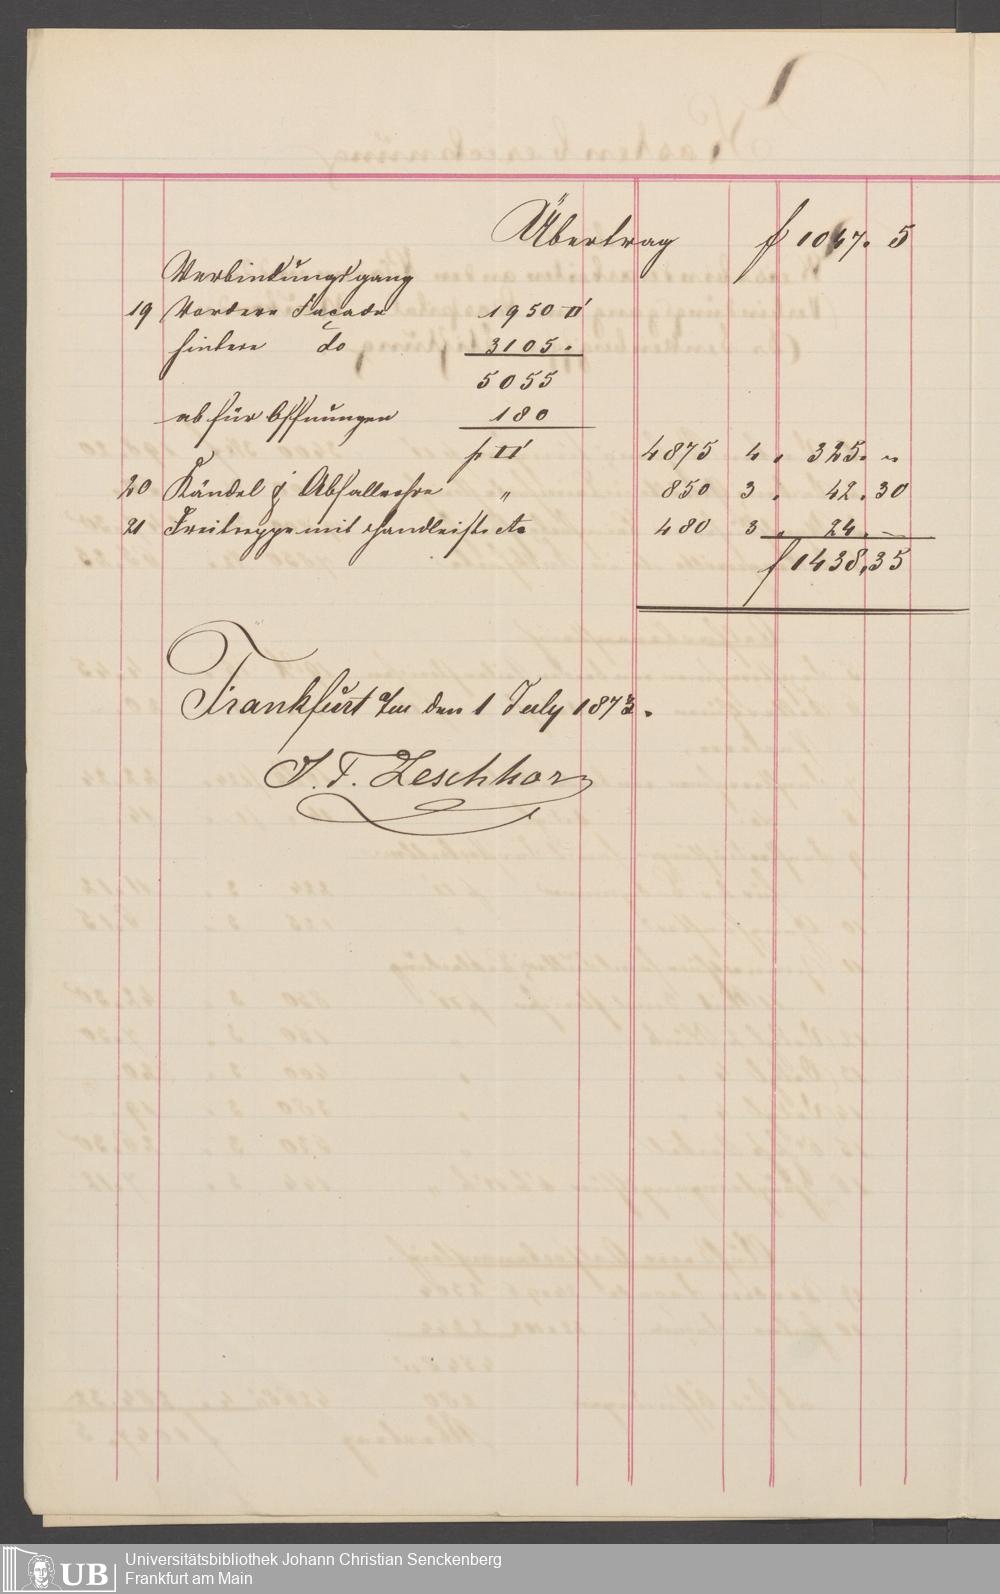 Übertrag f 1047. 5
Verbindungsgang
19 Vordere Façade 1950 □'
hintere do 3105.
5055
ab für Öffnungen 180
pr □' 4875 4 . 325. ~
20 Kändel & Abfallrohre " 850 3 . 42. 30
21 Freitreppe mit Handleiste etc 480 3 . 24. —
f 1438,35
Frankfurt a/m den 1 July 1873.
J. F. Zeschhorn
UB Universitätsbibliothek Johann Christian Senckenberg
Frankfurt am Main